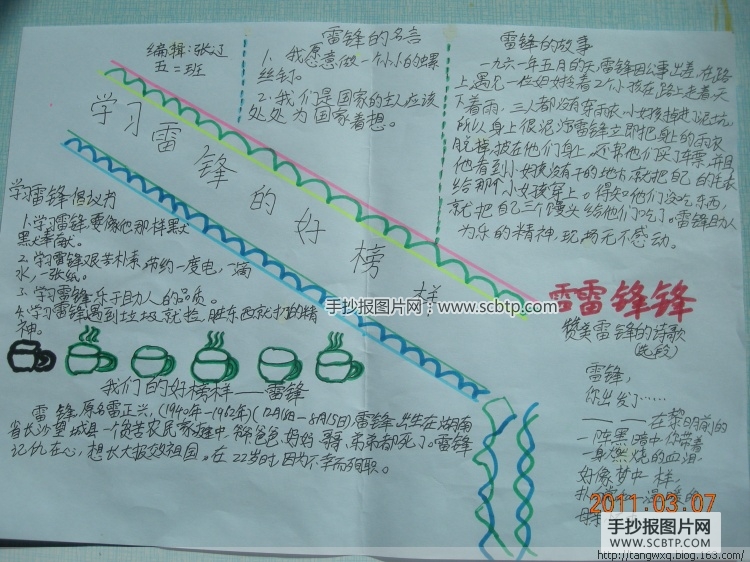 编辑:张辽
五二班
学习雷锋的好榜样
雷锋的名言
1、我愿意做一个小小的螺
丝钉。
2、我们是国家的主人应该
处处为国家着想。
雷锋的故事
一九六一年五月的一天,雷锋因公事出差,在路
上遇见一位妇女拎着2个小孩在路上走着,天
下着雨,三人都没有穿雨衣,小女孩掉进了泥坑
所以身上很泥泞雷锋立即把身上的雨衣
脱掉,披在他们身上,还帮他们买了车票,并且
他看到小女孩没有干的地方,就把自己的毛衣
给那个小女孩穿上。得知他们没吃东西,
就把自己三个馒头给他们吃了。雷锋助人
为乐的精神,现场无不感动。
学习雷锋倡议书
1.学习雷锋要像他那样默
默奉献。
2.学习雷锋艰苦朴素,节约一度电,一滴
水,一张纸。
3.学习雷锋乐于助人的品质。
4.学习雷锋遇到垃圾就捡,脏东西就打扫的精
神。
手抄报图片网:www.scbtp.com
雷雷锋锋
赞美雷锋的诗歌
(选段)
雷锋,
你出发了……
——在黎明前的
一阵黑暗中你带着
一身燃烧的血泪,
好像梦中一样,
我们的好榜样——雷锋
雷锋,原名雷正兴,(1940年-1962年)(12月18日-8月15日)雷锋出生在湖南
省长沙望城县一个贫苦农民家庭中,爷爷爸爸、妈妈、哥哥、弟弟都死了。雷锋
记忆在心,想长大报效祖国。在22岁时,因为不幸而殉职。
2011.03.07
手抄报图片网
WWW.SCBTP.COM
http://tangwxq.blog.163.com/